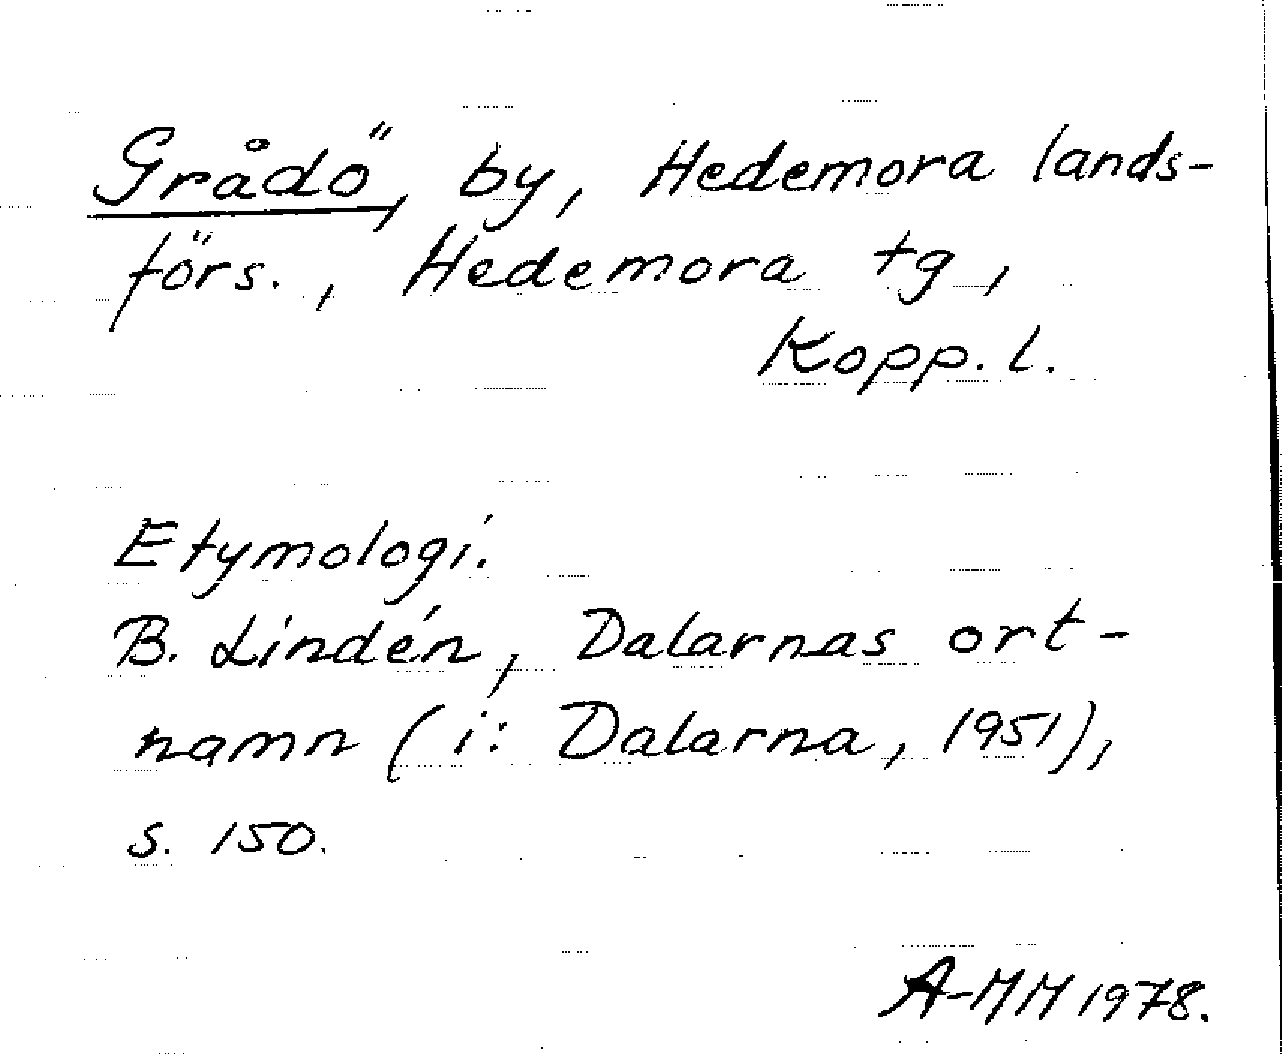 Grådö, by, Hedemora lands-
förs., Hedemora tg,
Kopp. l.
Etymologi.
B. Lindén, Dalarnas ort-
namn (i: Dalarna, 1951),
s. 150.
A-MM 1978.